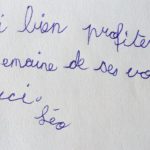 i bien profiter
emaine de ses va
ici.
Léo